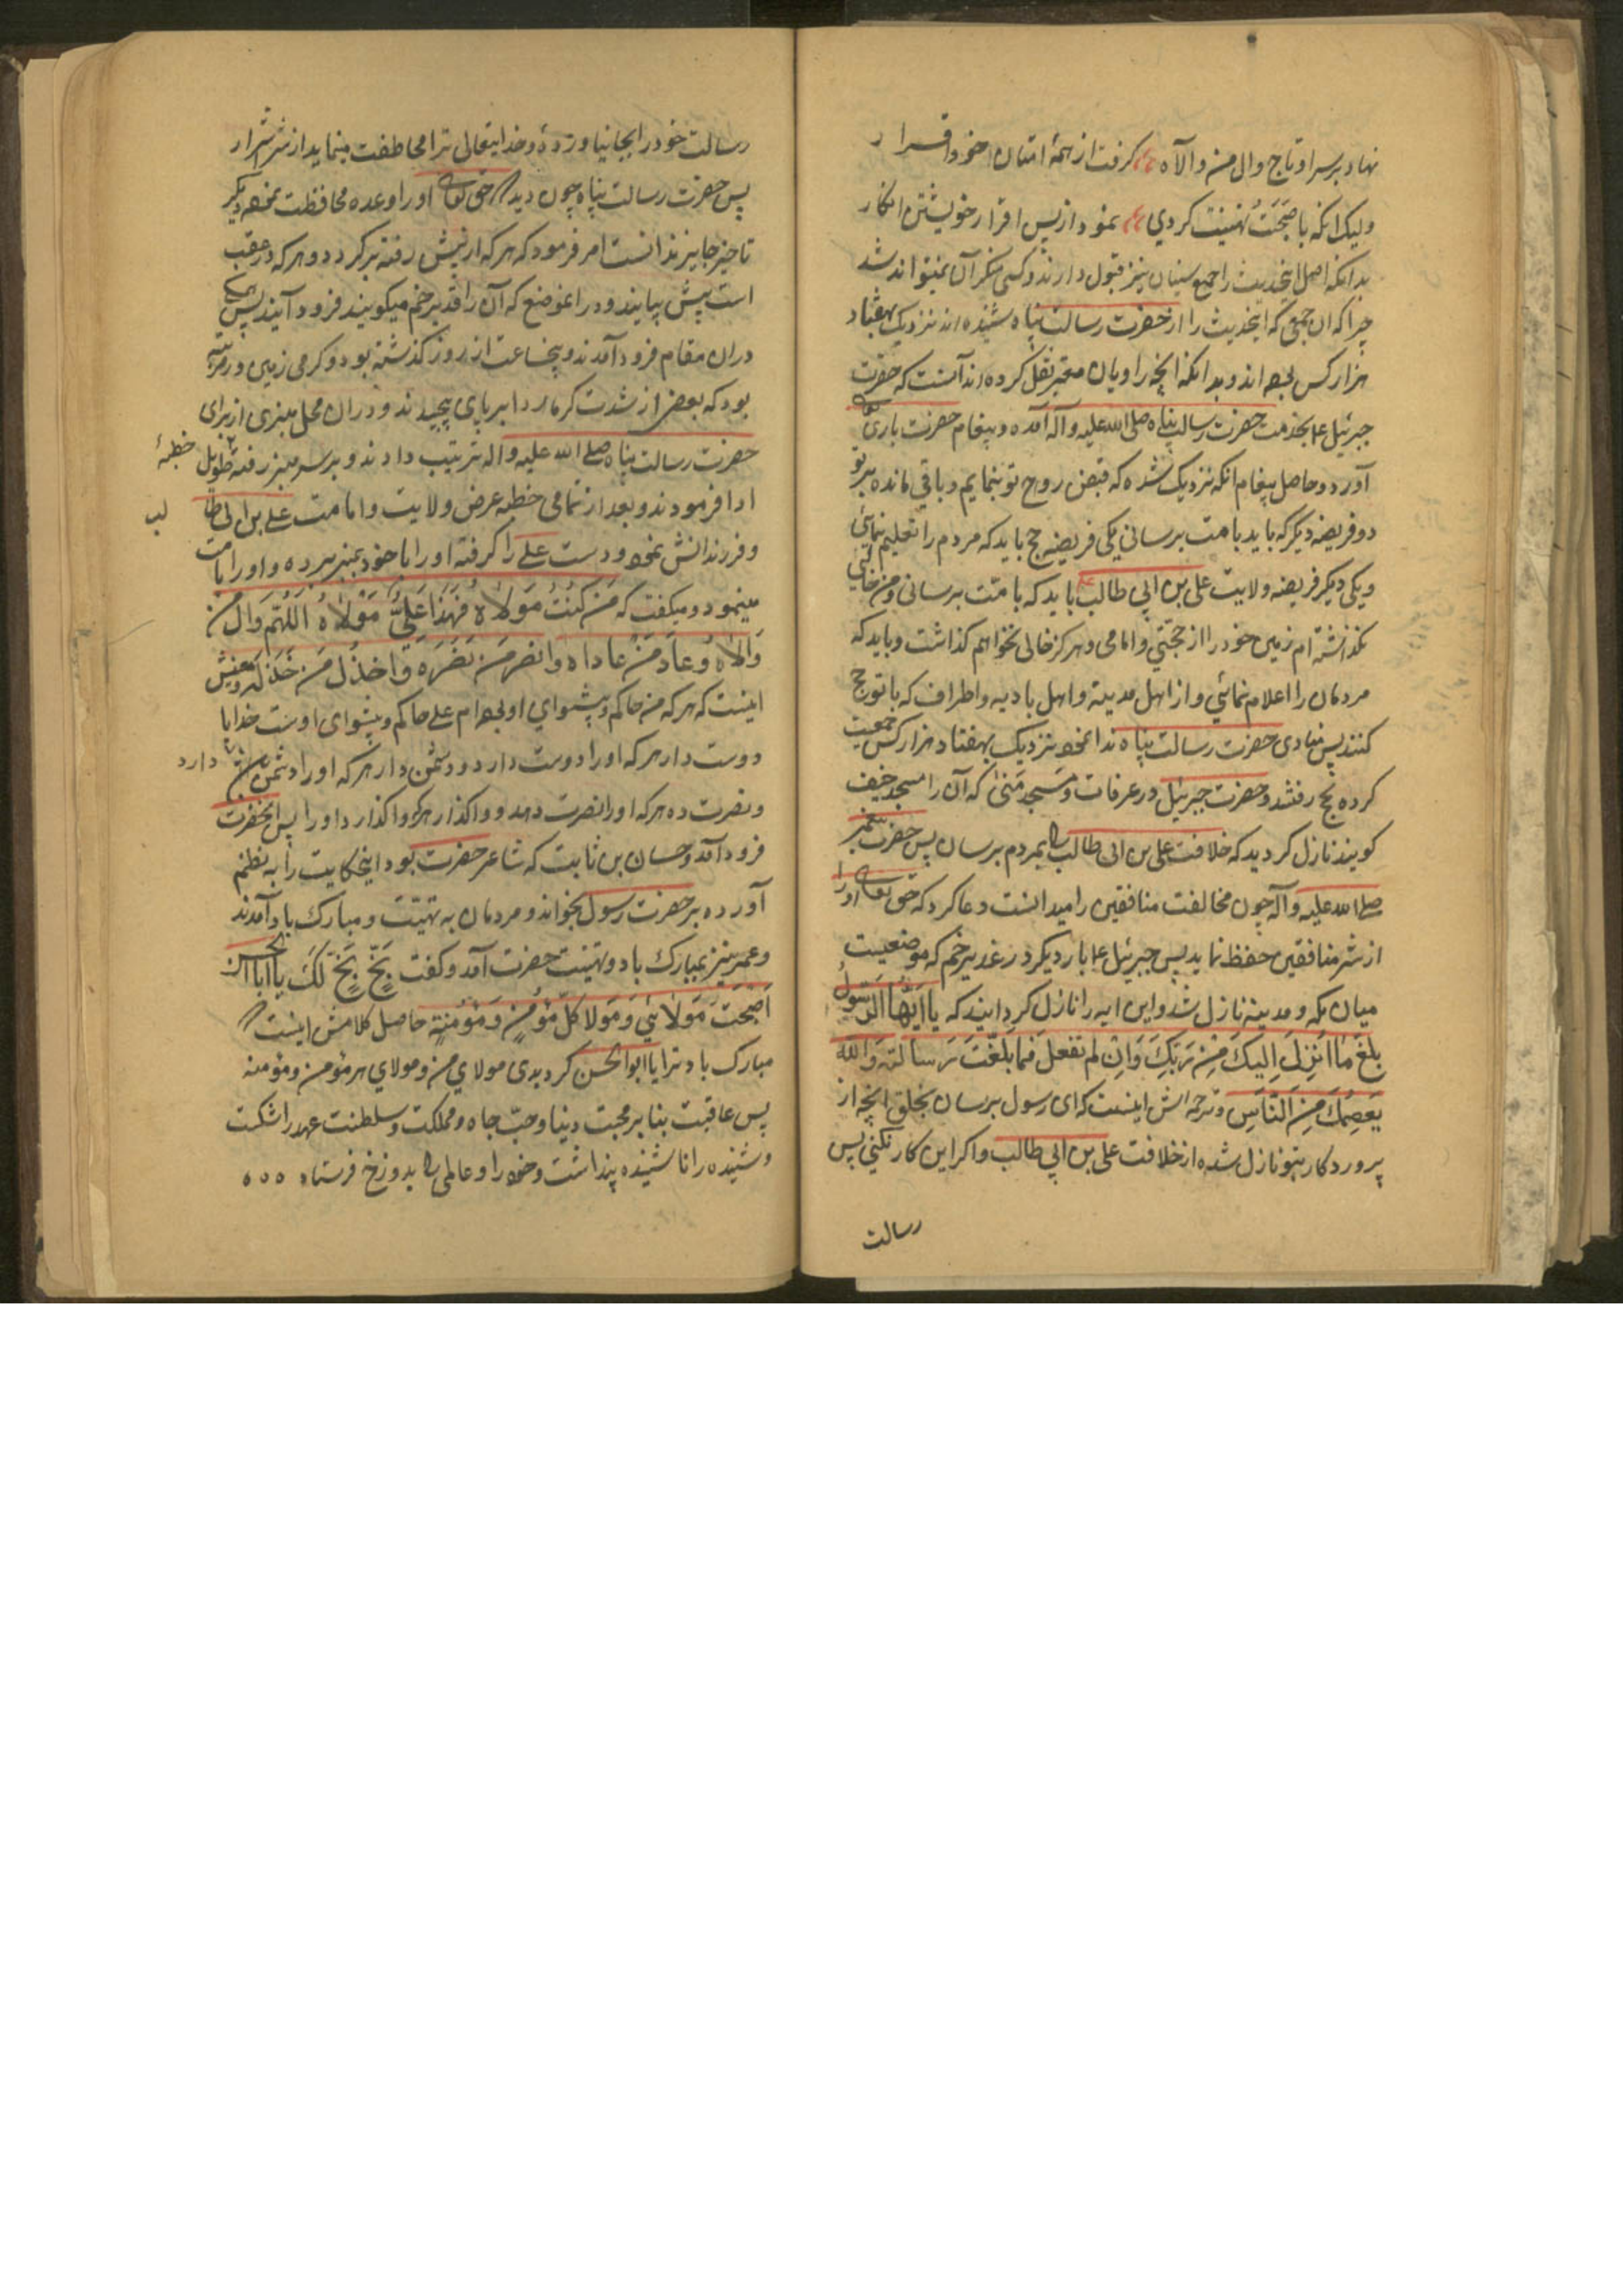 نهاد بر سر او تاج وال من والاه گرفت از همهٔ امتان خود اقرار
ولیک انکه باصبحت تهنیت کردی نمود از پس اقرار خویشتن انکار
بدانکه اصل اینحدیث را جمیع سنیان نیز قبول دارند و کسی منکر آن نمیتواند شد
چرا که ان جمعی که اینحدیث را از حضرت رسالت پناه شنیده اند نزدیک بهفتاد
هزار کس بوده اند و بدانکه انچه راویان معتبر نقل کرده اند آنست که حضرت
جبرئیل ع بخدمت حضرت رسالت پناه صلی الله علیه و آله آمده و پیغام حضرت باری
آورد و حاصل پیغام انکه نزدیک شده که قبض روح تو بنمایم و باقی مانده بر تو
دو فریضه دیگر که باید بامت برسانی یکی فریضه حج باید که مردم را تعلیم نمائی
و یکی دیگر فریضه ولایت علی بن ابی طالب باید که بامت برسانی و من خالی
نگذاشته ام زمین خود را از حجتی و امامی و هرگز خالی نخواهم گذاشت و باید که
مردمان را اعلام نمائی و از اهل مدینه و اهل بادیه و اطراف که با تو حج
کنند پس منادی حضرت رسالت پناه ندا نمود نزدیک بهفتاد هزار کس جمعیت
کرده بحج رفتند و حضرت جبرئیل در عرفات و مسجد منی که آن را مسجد خیف
گویند نازل گردید که خلافت علی بن ابی طالب را بمردم برسان پس حضرت پیغمبر
صلی الله علیه و آله چون مخالفت منافقین را میدانست دعا کرد که حق تعالی او را
از شر منافقین حفظ نماید پس جبرئیل ع بار دیگر در غدیر خم که موضعیست
میان مکه و مدینه نازل شد و این ایه را نازل گردانید که یا ایها الرسول
بلغ ما انزل الیک من ربک وان لم تفعل فما بلغت رسالته والله
یعصمک من الناس و ترجمه اش اینست که ای رسول برسان بخلق انچه از
پروردگار بتو نازل شده از خلافت علی بن ابی طالب و اگر این کار نکنی پس
رسالت
رسالت خود را بجا نیاورده و خدایتعالی ترا محاطفت مینماید از شر اشرار
پس حضرت رسالت پناه چون دید که حق تعالی او را وعده محافظت نمود دیگر
تاخیر جایز ندانست امر فرمود که هر که از پیش رفته برگردد و هر که در عقب
است پیش بیایند و در انموضع که آن را غدیر خم میگویند فرود آیند پس همگی
دران مقام فرود آمدند و پنجساعت از روز گذشته بود و گرمی زمین در مرتبه
بود که بعضی از شدت گرما ردا بر پای پیچیدند و دران محل منبری از برای
حضرت رسالت پناه صلی الله علیه واله ترتیب دادند و بر سر منبر رفته خطبهٔ طویل
ادا فرمودند و بعد از تمامی خطبه عرض ولایت و امامت علی بن ابی طالب
و فرزندانش نمود و دست علی را گرفته او را با خود بمنبر برده و او را امامت
مینمود و میگفت که من کنت مولاه فهذا علی مولاه اللهم وال من
والاه وعاد من عاداه وانصر من نصره واخذل من خذله و معنیش
اینست که هر که من حاکم و پیشوای او بوده ام علی حاکم و پیشوای اوست خدایا
دوست دار هر که او را دوست دارد و دشمن دار هر که او را دشمن دارد
و نصرت ده هر که او را نصرت دهد و واگذار هر که واگذارد او را پس انحضرت
فرود آمد و حسان بن ثابت که شاعر حضرت بود اینحکایت را به نظم
آورده بر حضرت رسول بخواند و مردمان به تهنیت و مبارک باد آمدند
و عمر نیز بمبارک باد و تهنیت حضرت آمد و گفت بخ بخ لک یا ابا الحسن
اصبحت مولائی و مولا کل مؤمن و مؤمنة حاصل کلامش اینست که
مبارک باد ترا یا ابوالحسن گردیدی مولای من و مولای هر مؤمن و مؤمنه
پس عاقبت بنا بر محبت دنیا و حب جاه و مملکت و سلطنت عهد را شکست
و شنیده را ناشنیده پنداشت و خود را و عالمی را بدوزخ فرستاد ٥٥٥